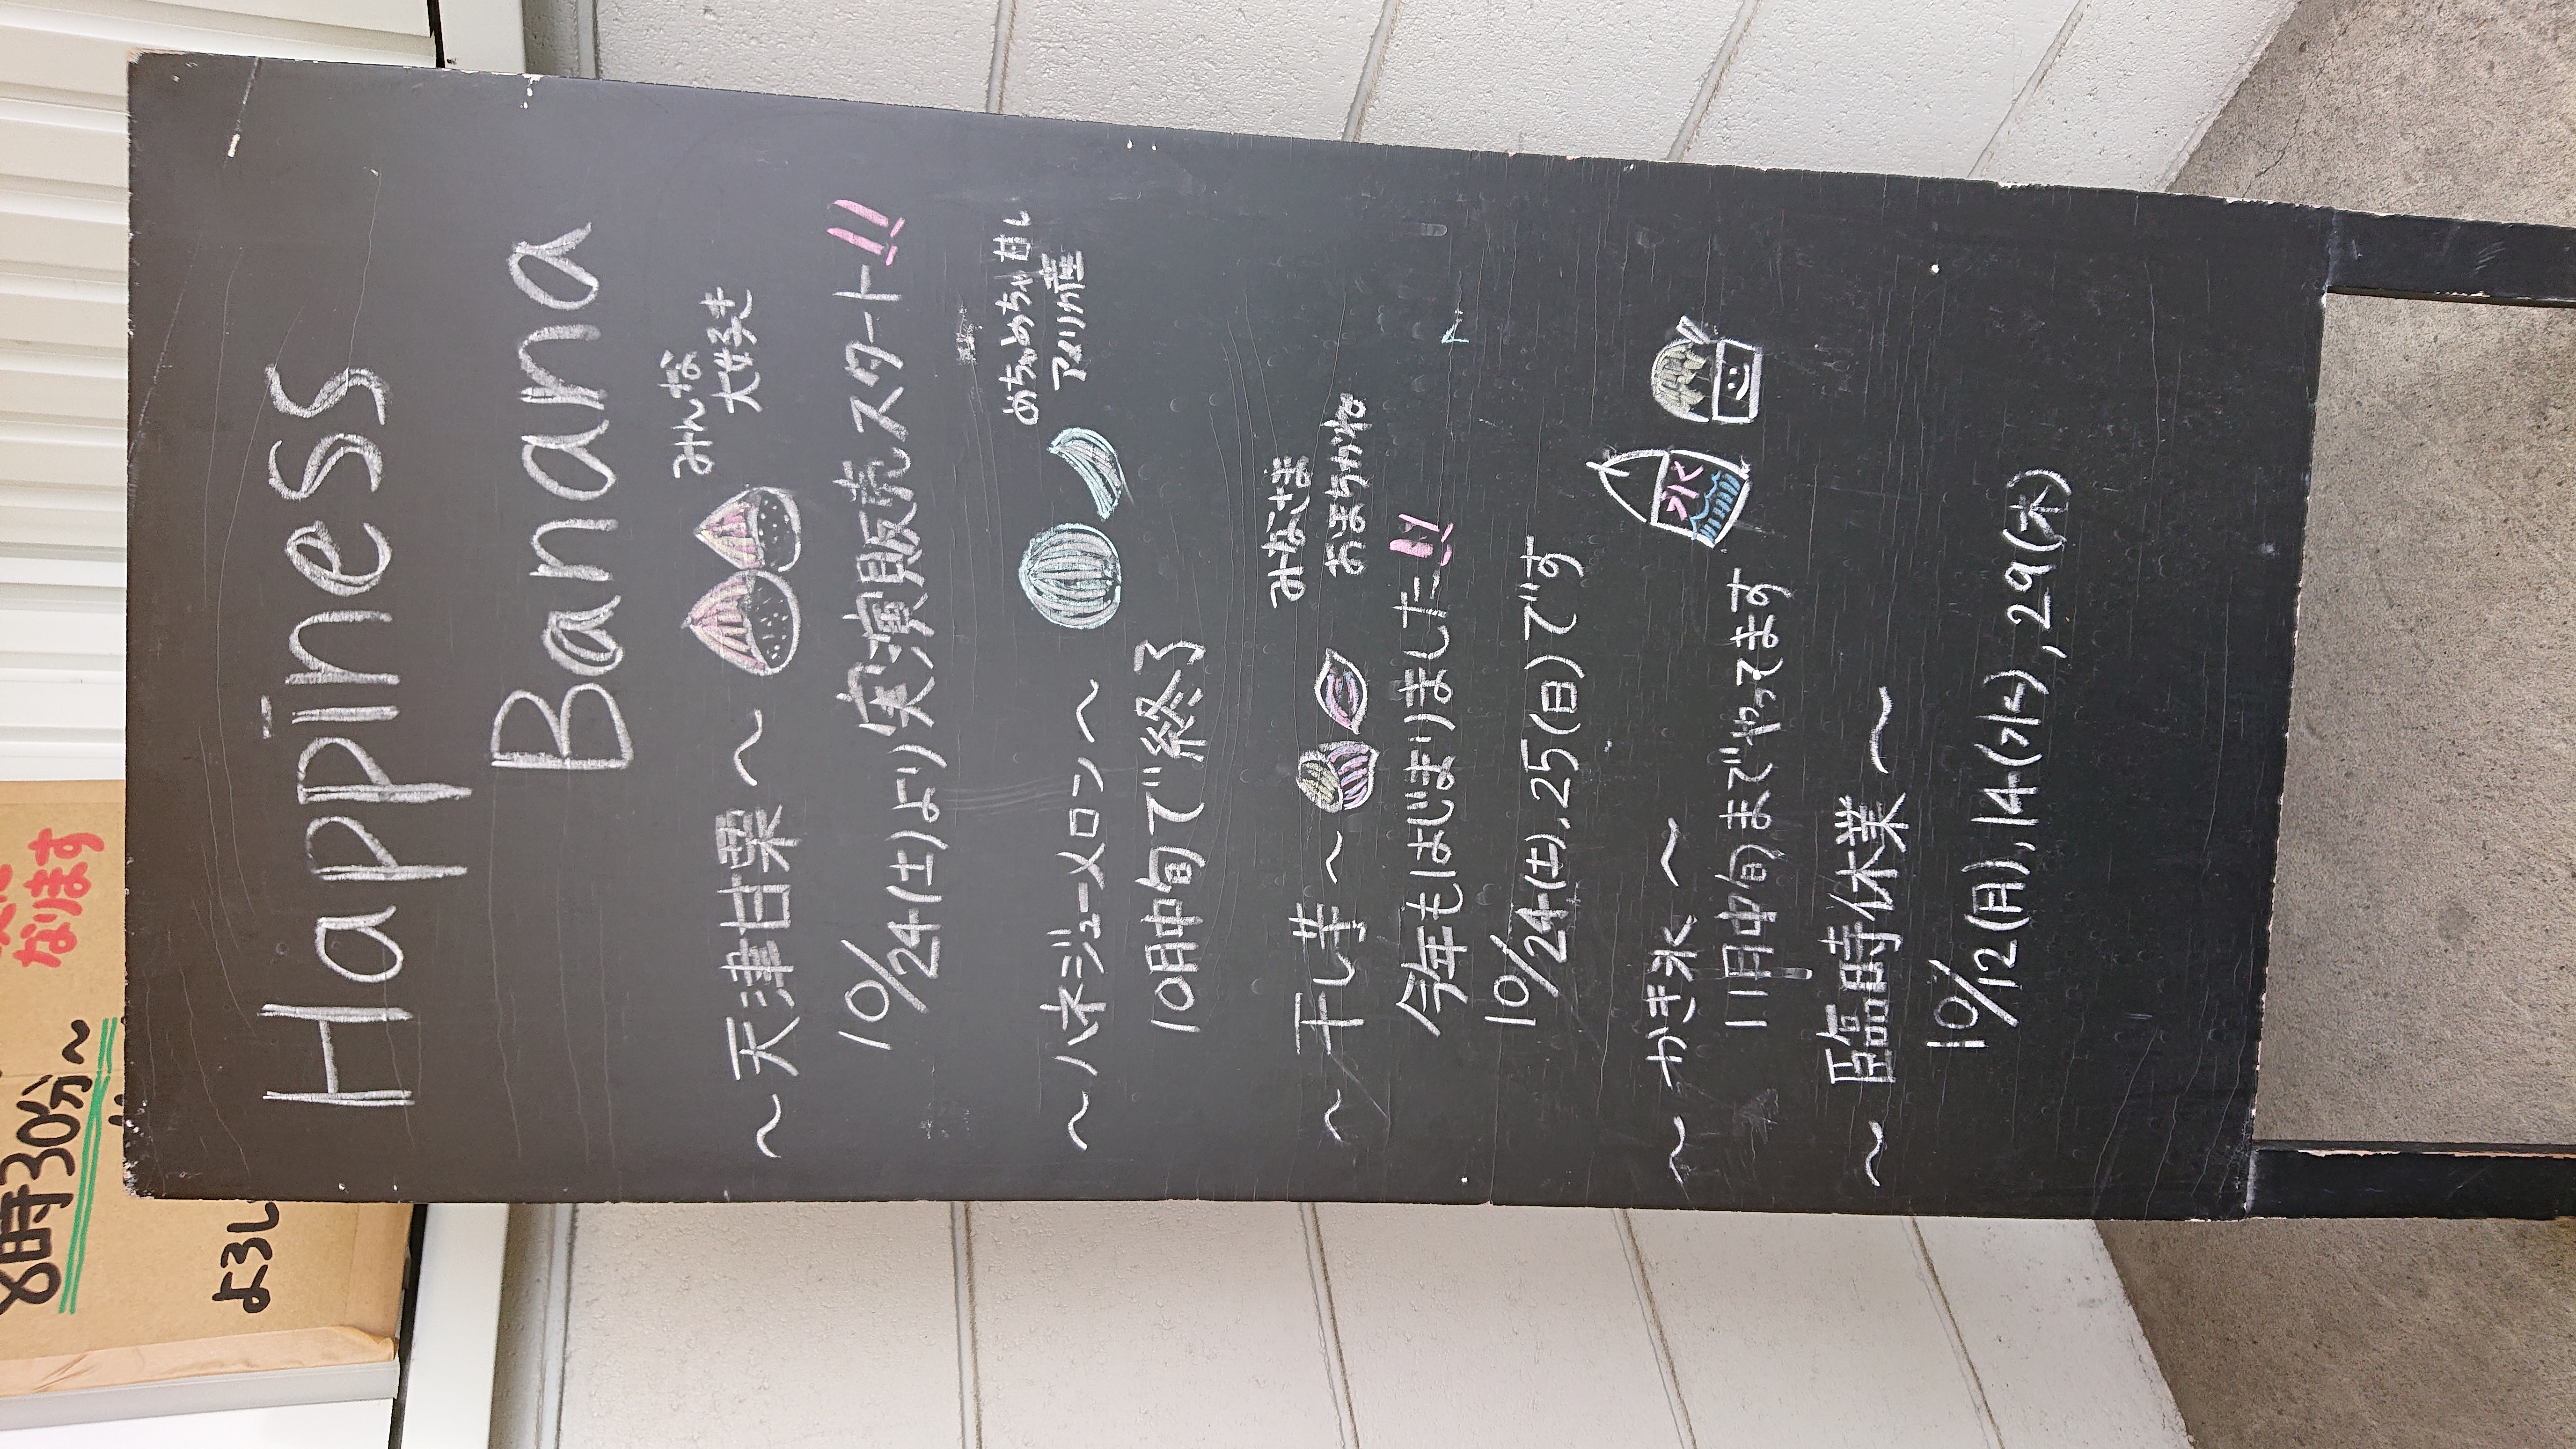 Happiness
Banana
～天津甘栗～
みんな
大好き
10/24(土)より実演販売スタート!!
～ハネジューメロン～
めちゃめちゃ甘い
アメリカ産
10月中旬で終了
～干し芋～
みなさま
おまちかね
今年もはじまりました!!
10/24(土),25(日)です
～かき氷～
氷
11月中旬までやってます
～臨時休業～
10/12(月),14(水),29(木)
8時30分～
なります
よろし